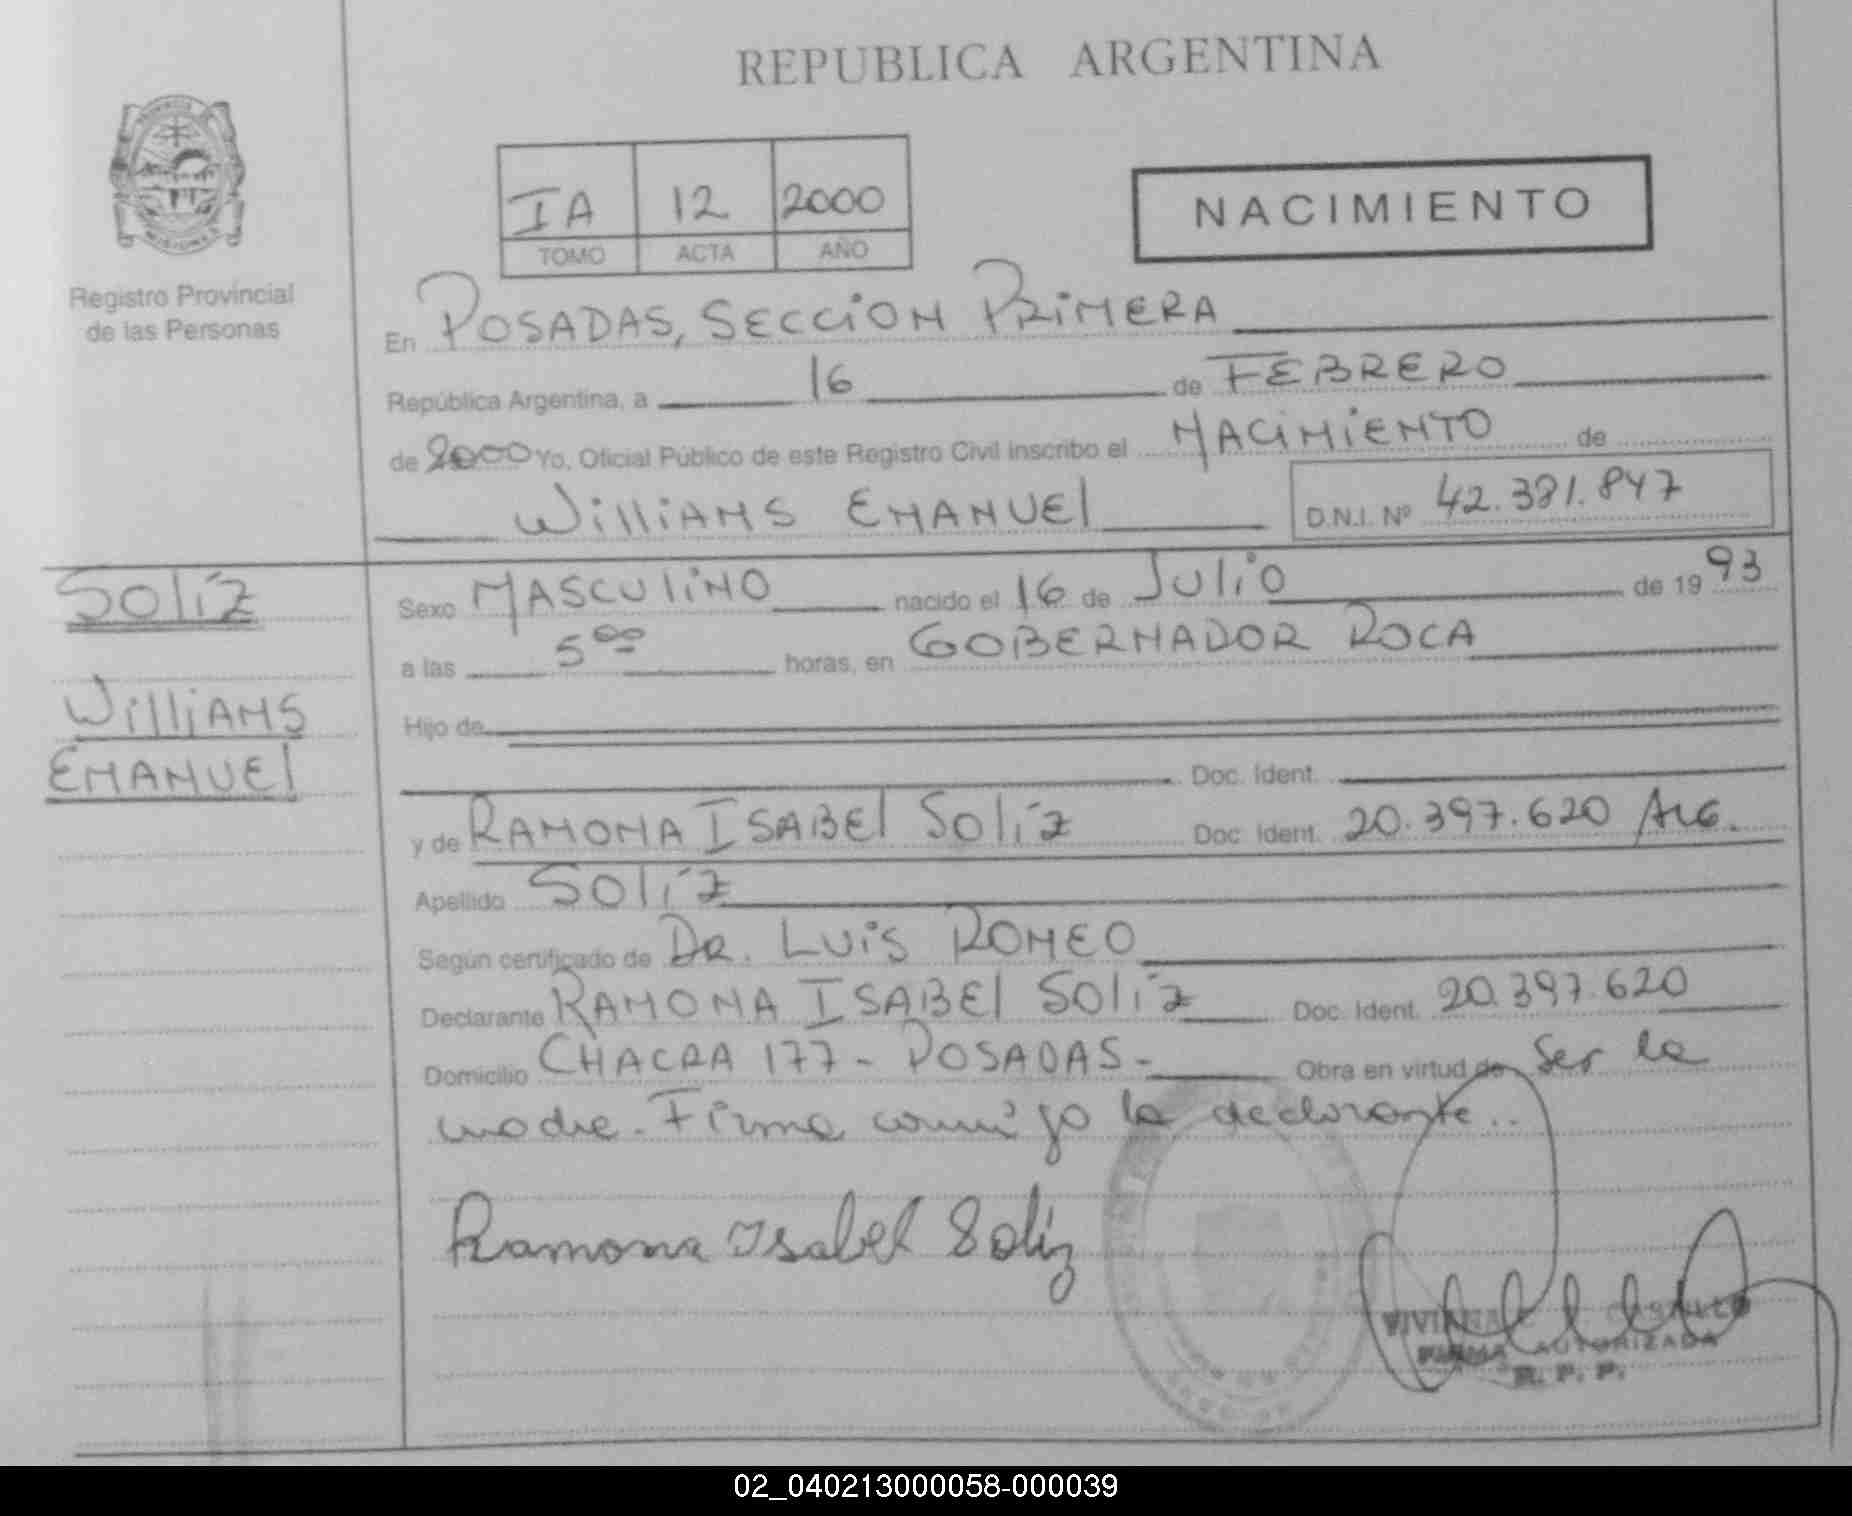 REPUBLICA ARGENTINA
Registro Provincial
de las Personas
IA 12 2000
TOMO ACTA AÑO
NACIMIENTO
En POSADAS, SECCION PRIMERA
República Argentina, a 16 de FEBRERO
de 2000 Yo, Oficial Público de este Registro Civil inscribo el NACIMIENTO de
WILLIAMS EMANUEL D.N.I. Nº 42.381.847
SOLÍZ
WILLIAMS
EMANUEL
Sexo MASCULINO nacido el 16 de JULIO de 1993
a las 5 00 horas, en GOBERNADOR ROCA
Hijo de
Doc. Ident.
y de RAMONA ISABEL SOLÍZ Doc. Ident. 20.397.620 ARG.
Apellido SOLÍZ
Según certificado de DR. LUIS ROMEO
Declarante RAMONA ISABEL SOLÍZ Doc. Ident. 20.397.620
Domicilio CHACRA 177 - POSADAS - Obra en virtud de Ser la
madre. Firma conmigo la declarante..
Ramona Isabel Solíz
CASTILLO
FIRMA AUTORIZADA
R. P. P.
02_040213000058-000039